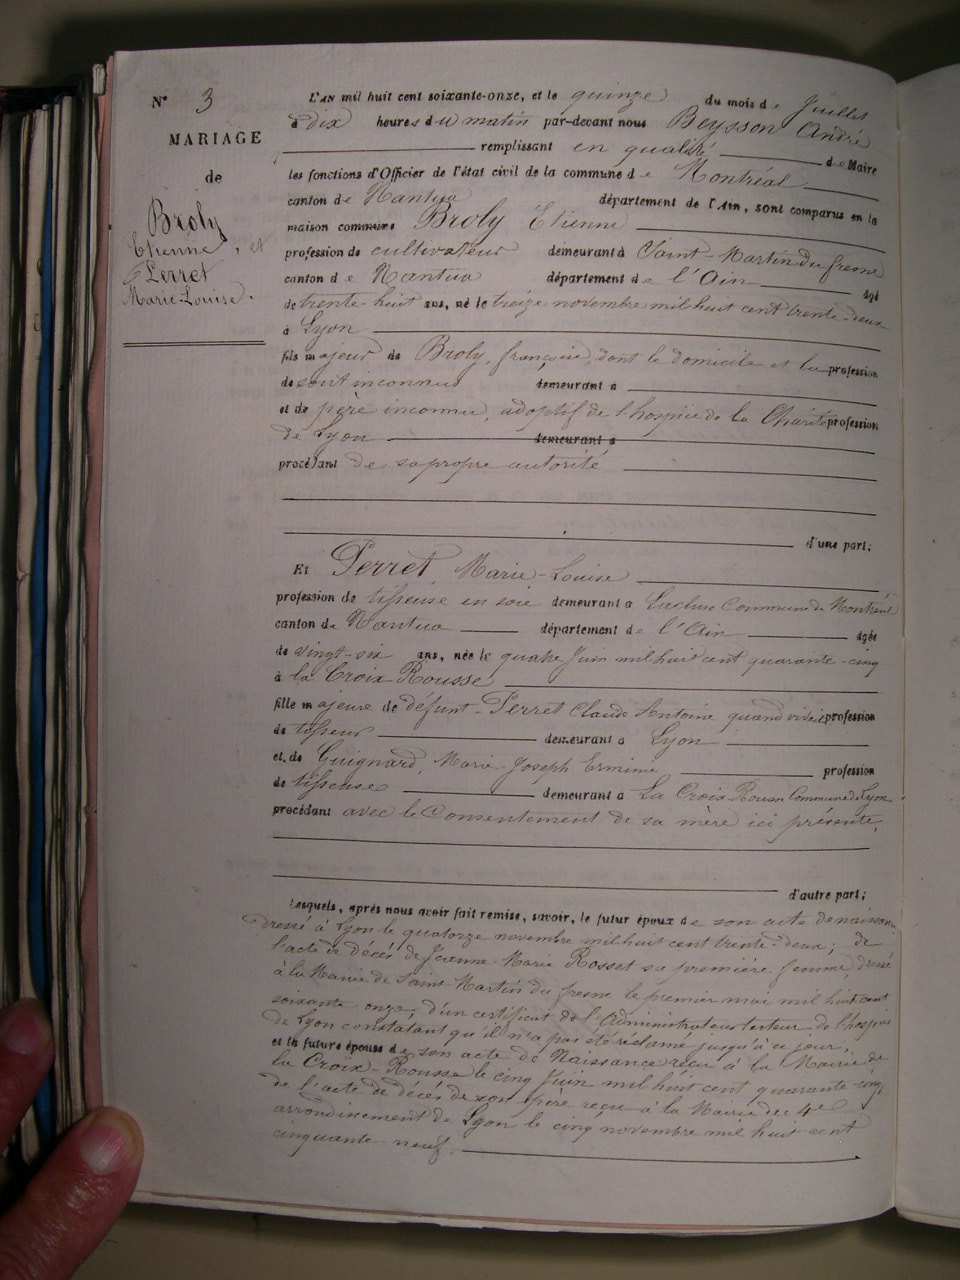 N° 3
MARIAGE
de
Broly
Etienne, et
Perret
Marie-Louise.
L'AN mil huit cent soixante-onze, et le quinze du mois de Juillet
à dix heures du matin par-devant nous Beysson André
remplissant en qualité de Maire
les fonctions d'Officier de l'état civil de la commune de Montréal
canton de Nantua département de l'Ain, sont comparus en la
maison commune Broly Etienne
profession de cultivateur demeurant à Saint-Martin du fresne
canton de Nantua département de l'Ain âgé
de trente-huit ans, né le treize novembre mil huit cent trente-deux
à Lyon
fils majeur de Broly, françoise, dont le domicile et la profession
de sont inconnus demeurant à
et de père inconnu, adoptif de l'hospice de la Charité profession
de Lyon demeurant à
procédant de sa propre autorité
d'une part;
Et Perret, Marie-Louise
profession de tisseuse en soie demeurant à Lucluse Commune de Montréal
canton de Nantua département de l'Ain âgée
de vingt-six ans, née le quatre Juin mil huit cent quarante-cinq
à la Croix-Rousse
fille majeure de défunt Perret Claude Antoine quand vivait profession
de tisseur demeurant à Lyon
et de Guignard, Marie-Joseph Ermine profession
de tisseuse demeurant à La Croix-Rousse Commune de Lyon
procédant avec le Consentement de sa mère ici présente,
d'autre part;
Lesquels, après nous avoir fait remise, savoir, le futur époux de son acte de naissance
dressé à Lyon le quatorze novembre mil huit cent trente-deux; de
l'acte de décès de Jeanne-Marie Rosset sa première femme, dressé
à la Mairie de Saint-Martin du fresne le premier mai mil huit cent
soixante-onze; d'un certificat de l'Administrateur tuteur de l'hospice
de Lyon constatant qu'il n'a pas été réclamé jusqu'à ce jour,
et la future épouse de son acte de Naissance reçu à la Mairie de
la Croix-Rousse le cinq Juin mil huit cent quarante cinq,
de l'acte de décès de son père reçu à la Mairie du 4e
arrondissement de Lyon le cinq novembre mil huit cent
cinquante-neuf.